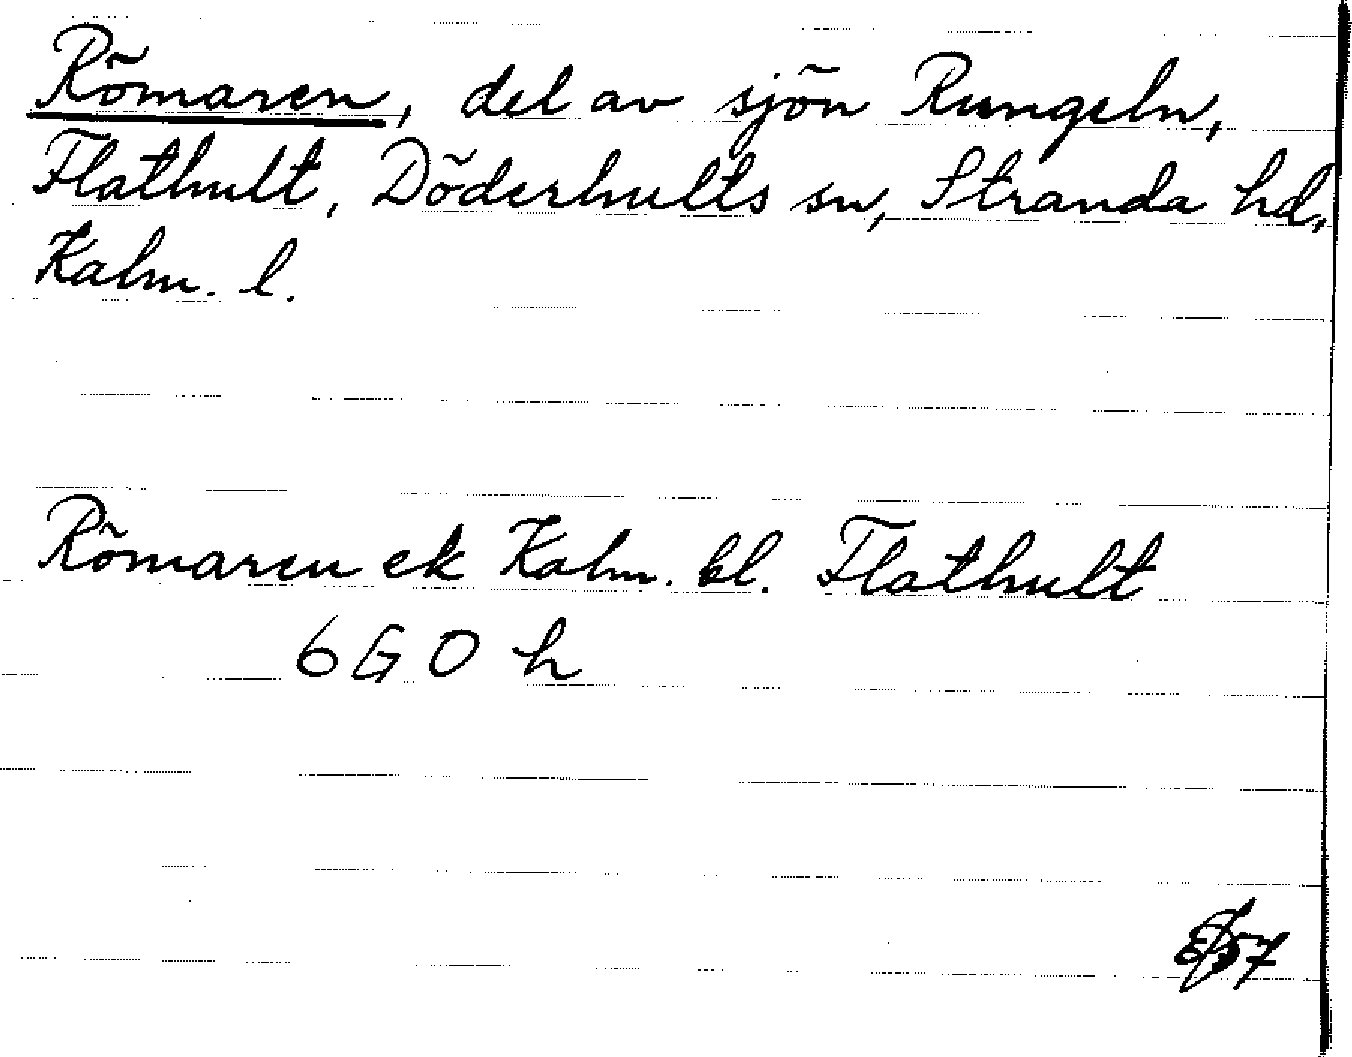 Römaren, del av sjön Rungeln,
Flathult, Döderhults sn, Stranda hd,
Kalm. l.
Römaren ek Kalm. bl. Flathult
6 G O h
57